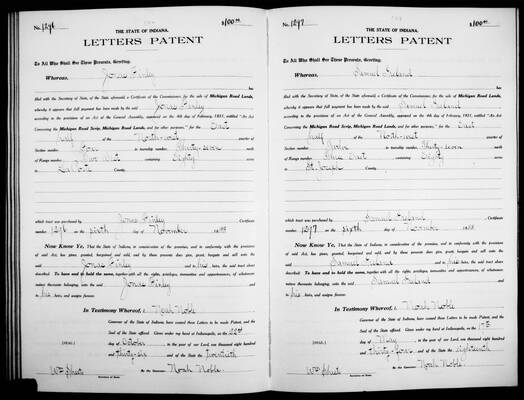 No. 1296
$100.00
THE STATE OF INDIANA.
LETTERS PATENT
To All Who Shall See These Presents, Greeting:
Whereas, Jonas Finly
has
filed with the Secretary of State, of the State aforesaid, a Certificate of the Commissioners for the sale of Michigan Road Lands,
whereby it appears that full payment has been made by the said Jonas Finly
according to the provisions of an Act of the General Assembly, approved on the 4th day of February, 1831, entitled "An Act
Concerning the Michigan Road Scrip, Michigan Road Lands, and for other purposes," for the East
half of the North-west quarter of
Section number Four in township number Thirty-seven north
of Range number Four West containing Eighty acres
in La Porte County.
which tract was purchased by Jonas Finly Certificate
1296 on the sixth day of November
Now Know Ye, That the State of Indiana, in consideration of the premises, and in conformity with the provisions
of said Act, has given, granted, bargained and sold, and by these presents does give, grant, bargain and sell to the
said Jonas Finly and his heirs, the said tract above
described. To have and to hold the same, together with all the rights, privileges, immunities and appurtenances, of whatsoever
nature thereunto belonging, unto the said Jonas Finly
and to his heirs, and assigns forever.
In Testimony Whereof, I Noah Noble
Governor of the State of Indiana, have caused these Letters to be made Patent, and the
Seal of the State affixed. Given under my hand at Indianapolis, on the 22d
[SEAL.] day of October in the year of our Lord, one thousand eight hundred
and thirty-six and of the State the twentieth
Wm Sheets By the Governor: Noah Noble
Secretary of State.
No. 1297
$100.00
THE STATE OF INDIANA.
LETTERS PATENT
To All Who Shall See These Presents, Greeting:
Whereas, Samuel Ireland
has
filed with the Secretary of State, of the State aforesaid, a Certificate of the Commissioners for the sale of Michigan Road Lands,
whereby it appears that full payment has been made by the said Samuel Ireland
according to the provisions of an Act of the General Assembly, approved on the 4th day of February, 1831, entitled "An Act
Concerning the Michigan Road Scrip, Michigan Road Lands, and for other purposes," for the East
half of the North-west quarter of
Section number Twelve in township number Thirty-seven north
of Range number Three East containing Eighty acres
in St. Joseph County.
which tract was purchased by Samuel Ireland Certificate
1297 on the sixth day of November
Now Know Ye, That the State of Indiana, in consideration of the premises, and in conformity with the provisions
of said Act, has given, granted, bargained and sold, and by these presents does give, grant, bargain and sell to the
said Samuel Ireland and his heirs, the said tract above
described. To have and to hold the same, together with all the rights, privileges, immunities and appurtenances, of whatsoever
nature thereunto belonging, unto the said Samuel Ireland
and to his heirs, and assigns forever.
In Testimony Whereof, I Noah Noble
Governor of the State of Indiana, have caused these Letters to be made Patent, and the
Seal of the State affixed. Given under my hand at Indianapolis, on the 17th
[SEAL.] day of May in the year of our Lord, one thousand eight hundred
and Thirty-four and of the State the eighteenth
Wm Sheets By the Governor: Noah Noble
Secretary of State.